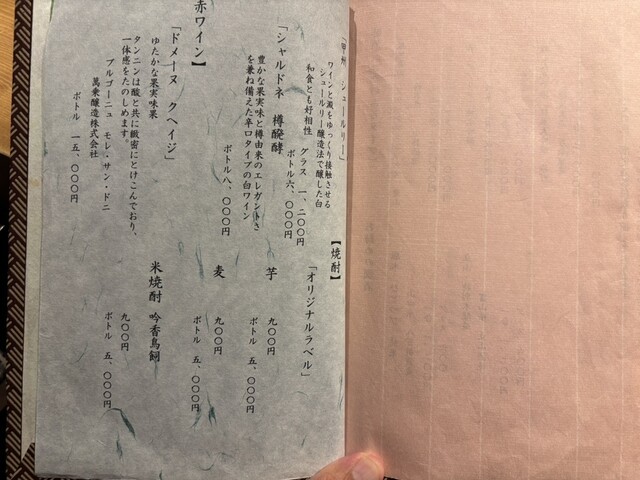 「甲州 シュールリー」
ワインと澱をゆっくり接触させる
シュールリー醸造法で醸した白
和食とも好相性
グラス 一、二〇〇円
ボトル六、〇〇〇円
「シャルドネ 樽醗酵
豊かな果実味と樽由来のエレガントさ
を兼ね備えた辛口タイプの白ワイン
ボトル八、〇〇〇円
赤ワイン】
「ドメーヌ クヘイジ」
ゆたかな果実味果
タンニンは酸と共に緻密にとけこんでおり、
一体感をたのしめます。
ブルゴーニュ モレ・サン・ドニ
萬乗醸造株式会社
ボトル 一五、〇〇〇円
【焼酎】
「オリジナルラベル」
芋
九〇〇円
ボトル 五、〇〇〇円
麦
九〇〇円
ボトル 五、〇〇〇円
米焼酎 吟香鳥飼
九〇〇円
ボトル 五、〇〇〇円